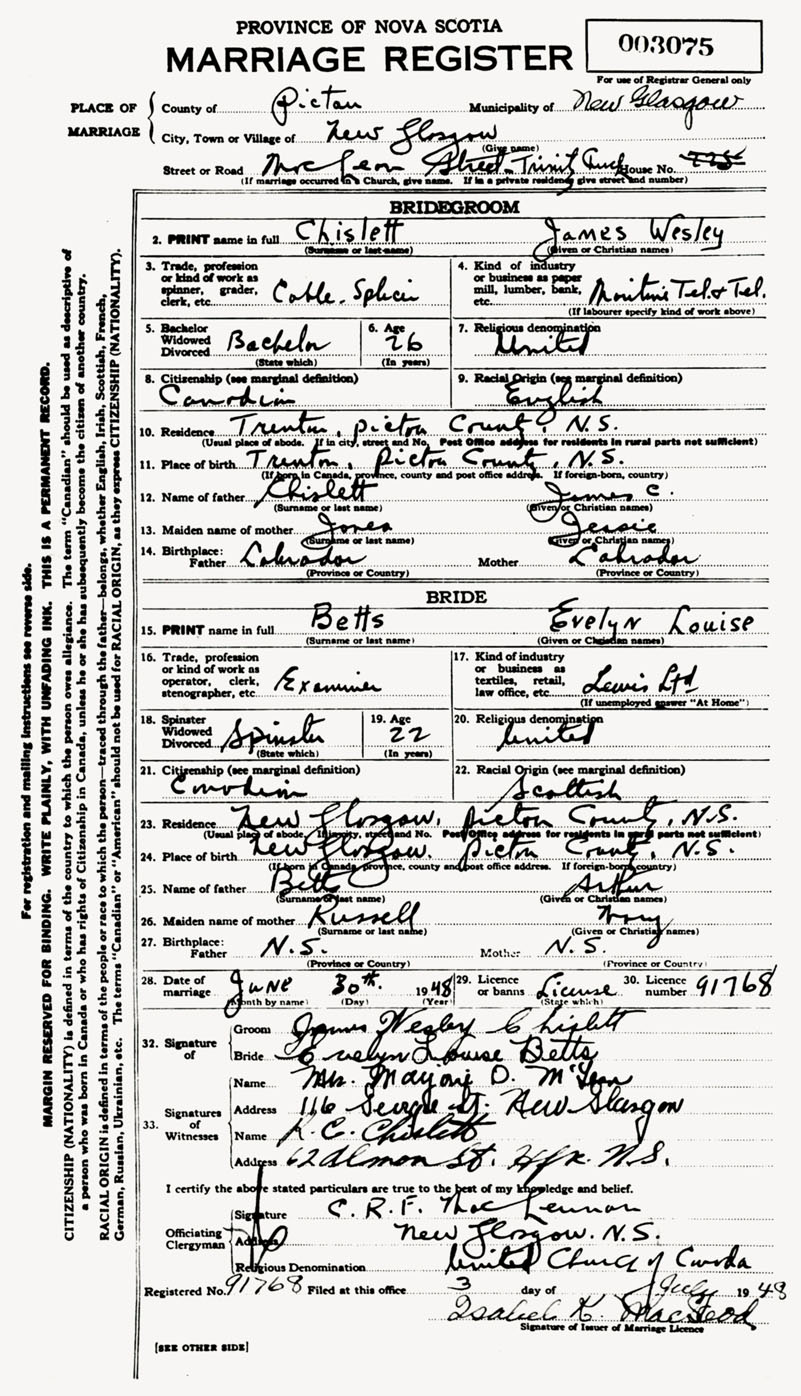 PROVINCE OF NOVA SCOTIA
MARRIAGE REGISTER
003075
For use of Registrar General only
PLACE OF MARRIAGE
County of Pictou Municipality of New Glasgow
City, Town or Village of New Glasgow
(Give name)
Street or Road MacLean Street Trinity Church House No. 225
(If marriage occurred in a Church, give name. If in a private residence give street and number)
BRIDEGROOM
2. PRINT name in full Chislett James Wesley
(Surname or last name) (Given or Christian names)
3. Trade, profession or kind of work as spinner, grader, clerk, etc. Cable-Splicer
4. Kind of industry or business as paper mill, lumber, bank, etc. Maritime Tel. & Tel.
(If labourer specify kind of work above)
5. Bachelor Widowed Divorced Bachelor
(State which)
6. Age 26
(In years)
7. Religious denomination United
8. Citizenship (see marginal definition) Canadian
9. Racial Origin (see marginal definition) English
10. Residence Trenton, Pictou County, N.S.
(Usual place of abode. If in city, street and No. Post Office address for residents in rural parts not sufficient)
11. Place of birth Trenton, Pictou County, N.S.
(If born in Canada, province, county and post office address. If foreign-born, country)
12. Name of father Chislett James C.
(Surname or last name) (Given or Christian names)
13. Maiden name of mother Jones Jessie
(Surname or last name) (Given or Christian names)
14. Birthplace: Father Labrador Mother Labrador
(Province or Country) (Province or Country)
BRIDE
15. PRINT name in full Betts Evelyn Louise
(Surname or last name) (Given or Christian names)
16. Trade, profession or kind of work as operator, clerk, stenographer, etc. Examiner
17. Kind of industry or business as textiles, retail, law office, etc. Lewis Ltd
(If unemployed answer "At Home")
18. Spinster Widowed Divorced Spinster
(State which)
19. Age 22
(In years)
20. Religious denomination United
21. Citizenship (see marginal definition) Canadian
22. Racial Origin (see marginal definition) Scottish
23. Residence New Glasgow, Pictou County, N.S.
(Usual place of abode. If in city, street and No. Post Office address for residents in rural parts not sufficient)
24. Place of birth New Glasgow. Pictou County, N.S.
(If born in Canada, province, county and post office address. If foreign-born, country)
25. Name of father Betts Arthur
(Surname or last name) (Given or Christian names)
26. Maiden name of mother Russell Mary
(Surname or last name) (Given or Christian names)
27. Birthplace: Father N.S. Mother N.S.
(Province or Country) (Province or Country)
28. Date of marriage June 30th. 1948
(Month by name) (Day) (Year)
29. Licence or banns License
(State which)
30. Licence number 91768
32. Signature of
Groom James Wesley Chislett
Bride Evelyn Louise Betts
33. Signatures of Witnesses
Name Mrs. Marjorie D. McLean
Address 116 George St. New Glasgow
Name R. C. Chislett
Address 62 Almon St. Hfx. N.S.
I certify the above stated particulars are true to the best of my knowledge and belief.
Officiating Clergyman
Signature C. R. F. MacLennan
Address New Glasgow. N.S.
Religious Denomination United Church of Canada
Registered No. 91768 Filed at this office 3 day of July 1948
Isabel K. MacLeod
Signature of Issuer of Marriage Licence
[SEE OTHER SIDE]
For registration and mailing instructions see reverse side.
MARGIN RESERVED FOR BINDING. WRITE PLAINLY, WITH UNFADING INK. THIS IS A PERMANENT RECORD.
CITIZENSHIP (NATIONALITY) is defined in terms of the country to which the person owes allegiance. The term "Canadian" should be used as descriptive of
a person who was born in Canada or who has rights of Citizenship in Canada, unless he or she has subsequently become the citizen of another country.
RACIAL ORIGIN is defined in terms of the people or race to which the person—traced through the father—belongs, whether English, Irish, Scottish, French,
German, Russian, Ukrainian, etc. The terms "Canadian" or "American" should not be used for RACIAL ORIGIN, as they express CITIZENSHIP (NATIONALITY).